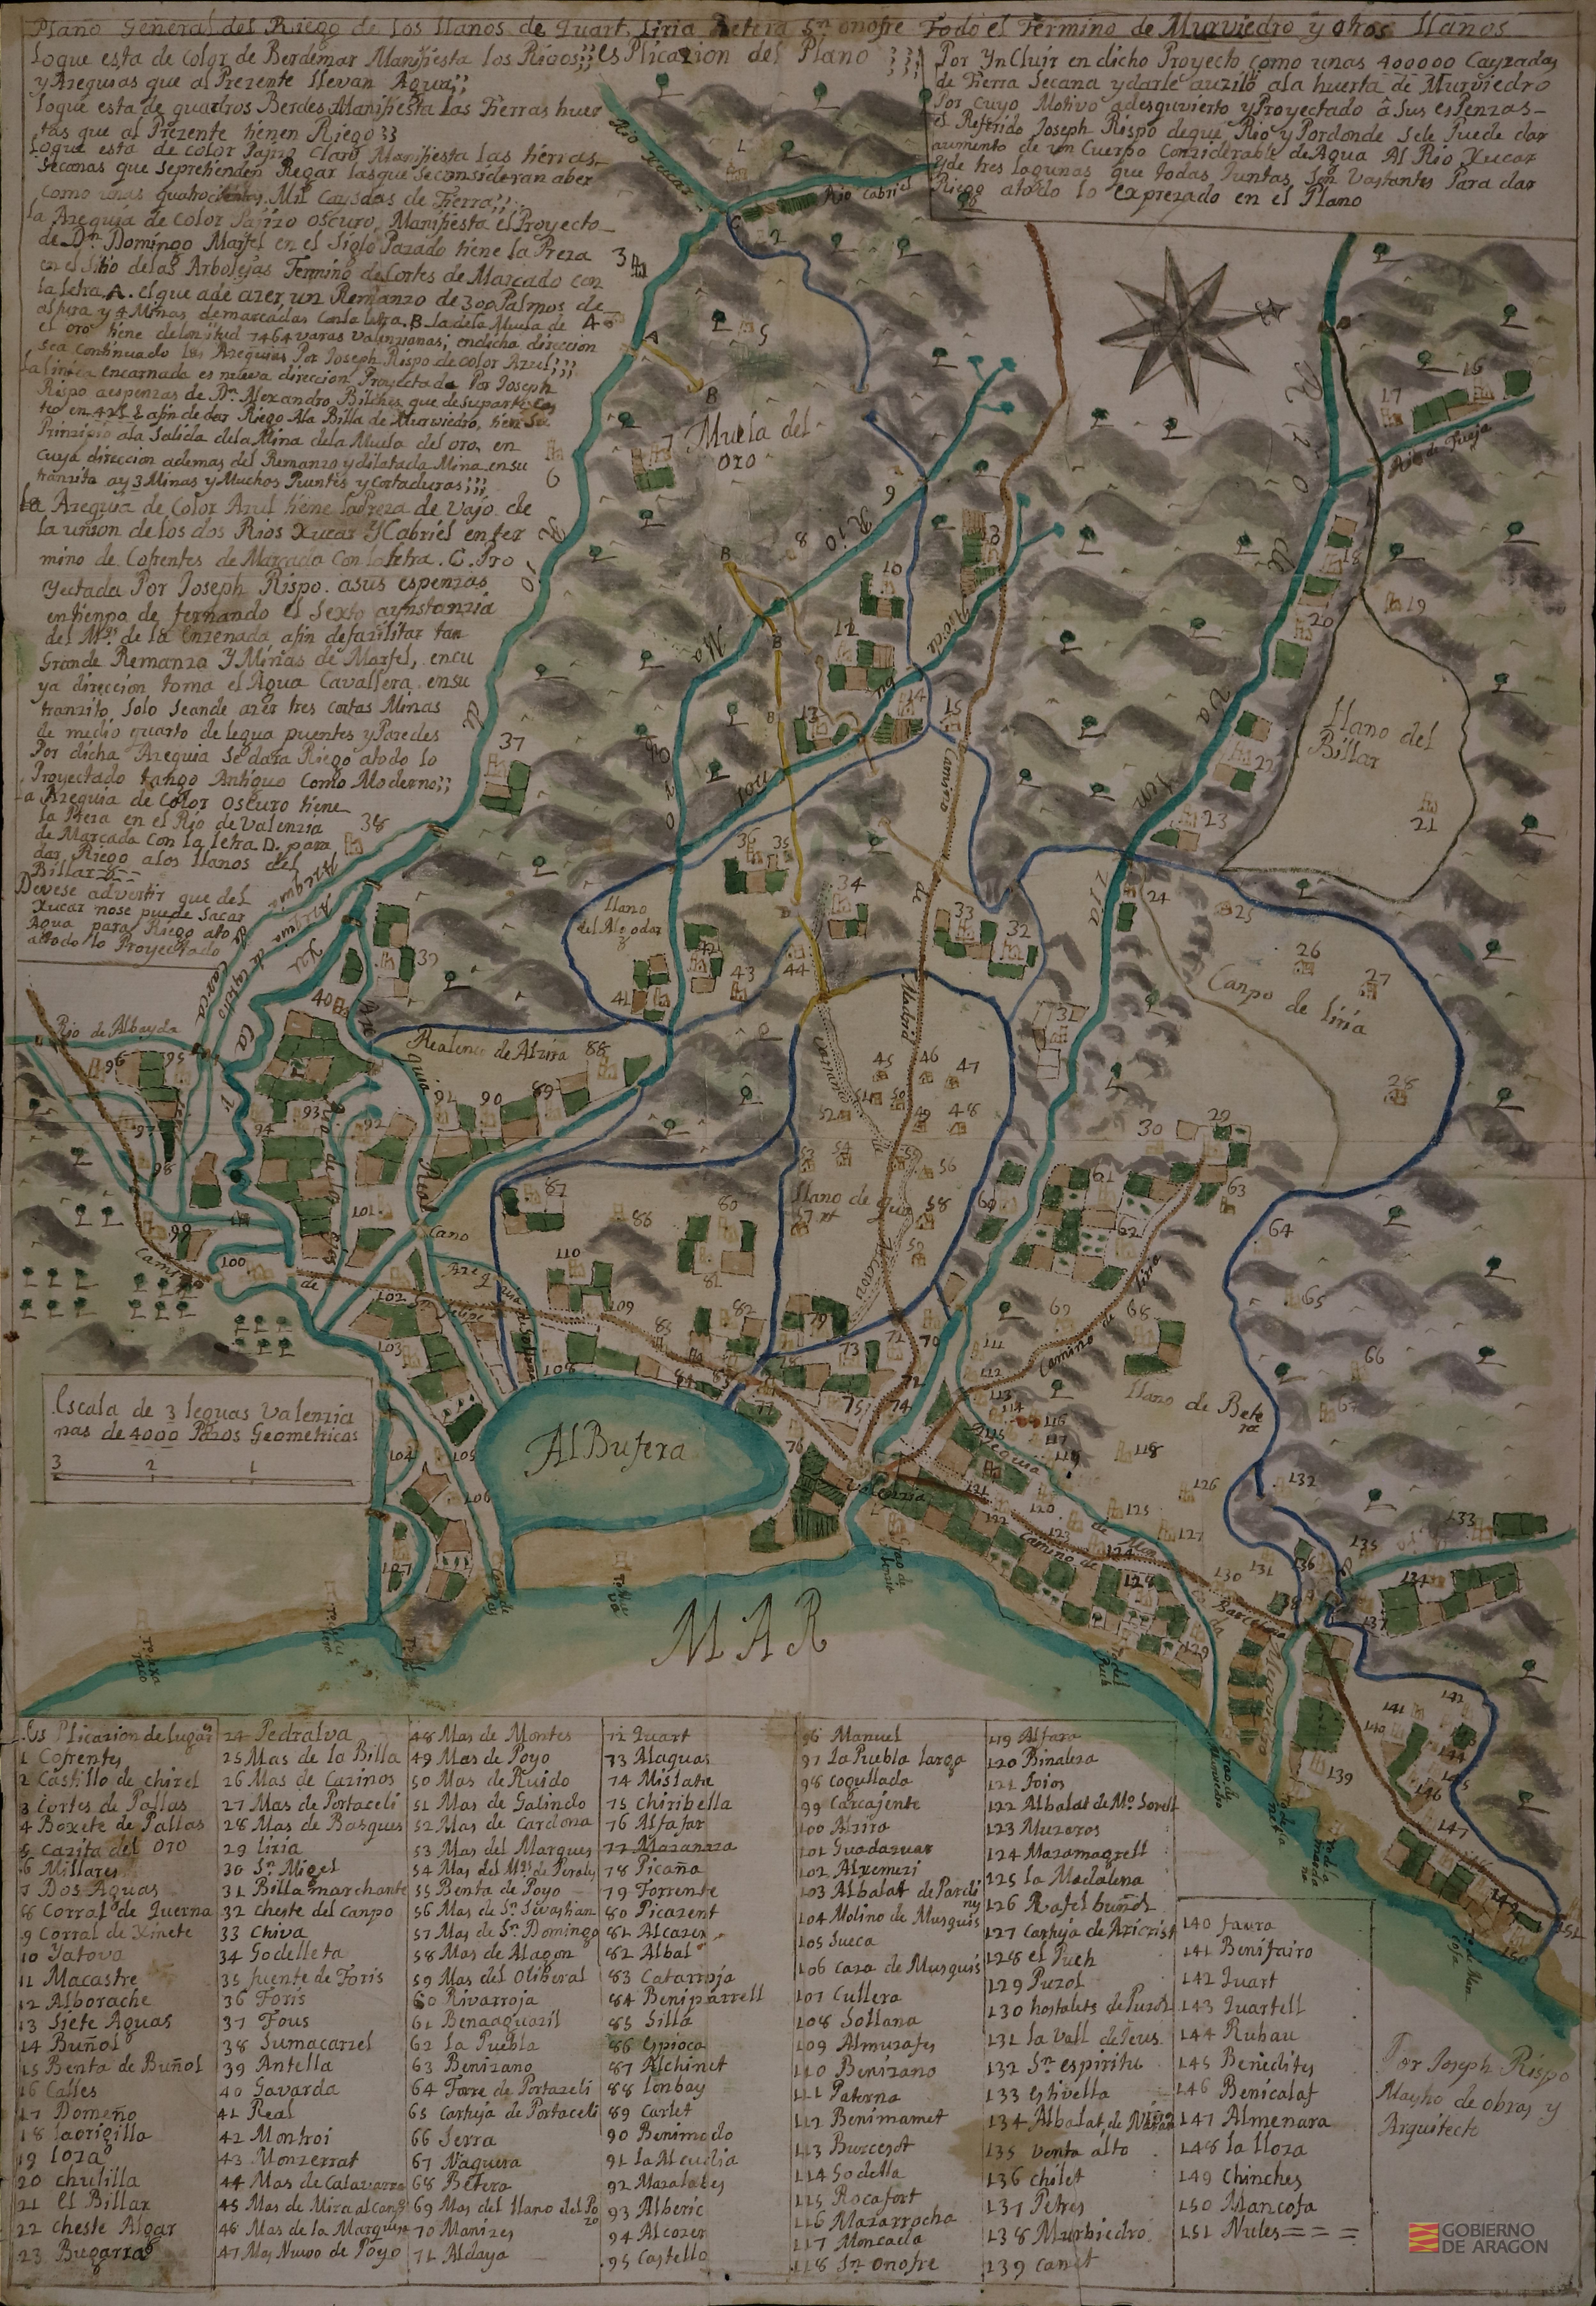 Plano General del Riego de los llanos de Quart, Liria Betera Sn. onofre Todo el Termino de Murviedro y otros llanos
esPlicazion del Plano
Loque esta de color de Berdemar Manifiesta los Rigos
y Azequias que al Prezente llevan Agua;;
loque esta de quadros Berdes Manifiesta las Tierras huer
tas que al Prezente tienen Riego
loque esta de color Pajizo Claro Manifiesta las tierras
secanas que seprehenden Regar lasque se consideran aber
como unas quatrocientas Mil Cayzadas de Tierra;;
la Azequia de color Pajizo oscuro, Manifiesta el Proyecto
de Dn. Domingo Martel en el Siglo Pazado tiene la Preza
en el Sitio de las Arbolejas Termino de Cortes de Marcado con
la letra A. el que a de azer un Remanzo de 300 Palmos de
altura y 4 Minas demarcadas con la letra B la de la Muela de
el oro tiene de lonjitud 7464 varas valenzianas; en dicha direccion
sea continuado las Azequias Por Joseph Rispo de color Azul;;;
la linea encarnada es nueva direccion Proyectada Por Joseph
Rispo aespenzas de Dn. Alexandro Bilches que
afin de dar Riego Ala Billa de Murviedro, tiene su
Prinzipio ala Salida dela Mina dela Muela del oro, en
cuya direccion ademas del Remanzo y dilatada Mina en su
tranzito ay 3 Minas y Muchos Puentes y Cortaduras;;;
la Azequia de Color Azul tiene la Preza de vajo de
la union de los dos Rios Xucar Y Cabriel en ter
mino de Cofrentes de Marcada Con la letra C. Pro
yectada Por Joseph Rispo. asus espenzas
en tienpo de fernando el Sexto aynstanzia
del Mqs. de la Enzenada afin de fazilitar tan
Grande Remanza Y Minas de Martel, encu
ya direccion toma el Agua Cavallera ensu
tranzito, Solo Seande azer tres cortas Minas
de medio quarto de legua puentes y Paredes
Por dicha Azequia Se dara Riego atodo lo
Proyectado tango Antiguo Como Moderno;;
a Azequia de Color oscuro tiene
la Preza en el Rio de Valenzia
de Marcada Con la letra D. para
dar Riego alos llanos del
Billar
Devese advertir que del
Xucar nose puede Sacar
Agua para Riego
atodo lo Proyectado
Por YnCluir en dicho Proyecto como unas 400000 Cayzadas
de Tierra Secana y darle auzilio ala huerta de Murviedro
Por cuyo Motivo a desquvierto y Proyectado â Sus esPenzas
el Referido Joseph Rispo de que Rio y Por donde Sele Puede dar
aumento de un Cuerpo Considerable de Agua Al Rio Xucar
y de tres lagunas que todas Juntas Son Vastantes Para dar
Riego atodo lo exprezado en el Plano
Rio Xucar
Rio Cabriel
Muela del
oro
Rio de Tueja
Llano del
Billar
Rio Magro
Rio de Buñol
Camino de Madrid
Llano
del Algodor
Canpo de liria
Rio de Albayda
Realenco de Alzira
Llano de Quart
Camino de liria
Llano de Bete
ra
Escala de 3 leguas Valenzia
nas de 4000 Pasos Geometricos
3 2 1
AlBufera
Valenzia
Camino de Barcelona
MAR
EsPlicazion de lugares
1 Cofrentes
2 Castillo de chirel
3 Cortes de Pallas
4 Boxete de Pallas
5 Cazita del oro
6 Millares
7 Dos Aguas
8 Corral de Querna
9 Corral de Xinete
10 Yatova
11 Macastre
12 Alborache
13 Siete Aguas
14 Buñol
15 Benta de Buñol
16 Calles
17 Domeño
18 laorigilla
19 loza
20 chulilla
21 el Billar
22 cheste Algar
23 Bugarra
24 Pedralva
25 Mas de la Billa
26 Mas de Carinos
27 Mas de Portaceli
28 Mas de Basques
29 liria
30 Sn. Migel
31 Billa marchante
32 cheste del Canpo
33 chiva
34 Godelleta
35 fuente de Foris
36 Foris
37 Tous
38 Sumacarzel
39 Antella
40 Gavarda
41 Real
42 Montroi
43 Monzerrat
44 Mas de Calatarra
45 Mas de Mira al Canp
46 Mas de la Marquesa
47 Mas Nuevo de Poyo
48 Mas de Montes
49 Mas de Poyo
50 Mas de Ruido
51 Mas de Galindo
52 Mas de Cardona
53 Mas del Marques
54 Mas del Mqs de Perales
55 Benta de Poyo
56 Mas de Sn. Sevastian
57 Mas de Sn. Domingo
58 Mas de Alagon
59 Mas del Oliberal
60 Rivarroja
61 Benaguazil
62 la Puebla
63 Benizano
64 Torre de Portazeli
65 Cartuja de Portaceli
66 Serra
67 Naquera
68 Betera
69 Mas del llano del Pozo
70 Manizes
71 Aldaya
72 Quart
73 Alaguas
74 Mislata
75 Chiribella
76 Alfafar
77 Mazanaza
78 Picaña
79 Torrente
80 Picazent
81 Alcazer
82 Albal
83 Catarroja
84 Beniparrell
85 Silla
86 Espioca
87 Alchinet
88 lonbay
89 Carlet
90 Benimodo
91 la Alcudia
92 Mazalabes
93 Alberic
94 Alcozer
95 Castello
96 Manuel
97 la Puebla larga
98 cogullada
99 Carcajente
100 Alzira
101 Guadazuar
102 Alxemezi
103 Albalat de Pardiñes
104 Molino de Musquis
105 Sueca
106 caza de Musquis
107 Cullera
108 Sollana
109 Almuzafes
110 Benizano
111 Paterna
112 Benimamet
113 Burcesot
114 Godella
115 Rocafort
116 Mazarrocha
117 Moncada
118 Sn. onofre
119 Alfara
120 Binaleza
121 foios
122 Albalat de Mo. Sorell
123 Muzeros
124 Mazamagrell
125 la Madalena
126 Rafel buñol
127 Cartuja de Ariorist
128 el Puch
129 Puzol
130 hostalets de Puzol
131 la Vall de Jeus
132 Sn. espiritu
133 estivella
134 Albalat de
135 venta alto
136 Chilet
137 Petres
138 Murbiedro
139 Canet
140 faura
141 Benifairo
142 Quart
143 Quartell
144 Rubau
145 Benedites
146 Benicalaf
147 Almenara
148 la lloza
149 Chinches
150 Mancofa
151 Nules
Por Joseph Rispo
Mastro de obras y
Arquitecto
GOBIERNO
DE ARAGON